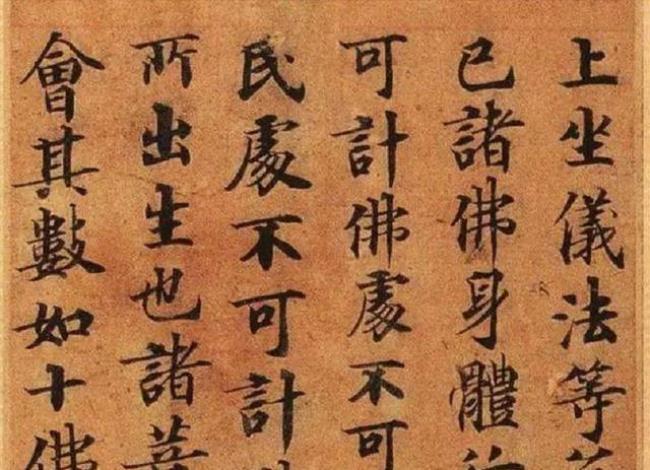 上坐儀法等
已諸佛身體
可計佛處不可
民處不可計
所出生也諸菩
會其數如十佛